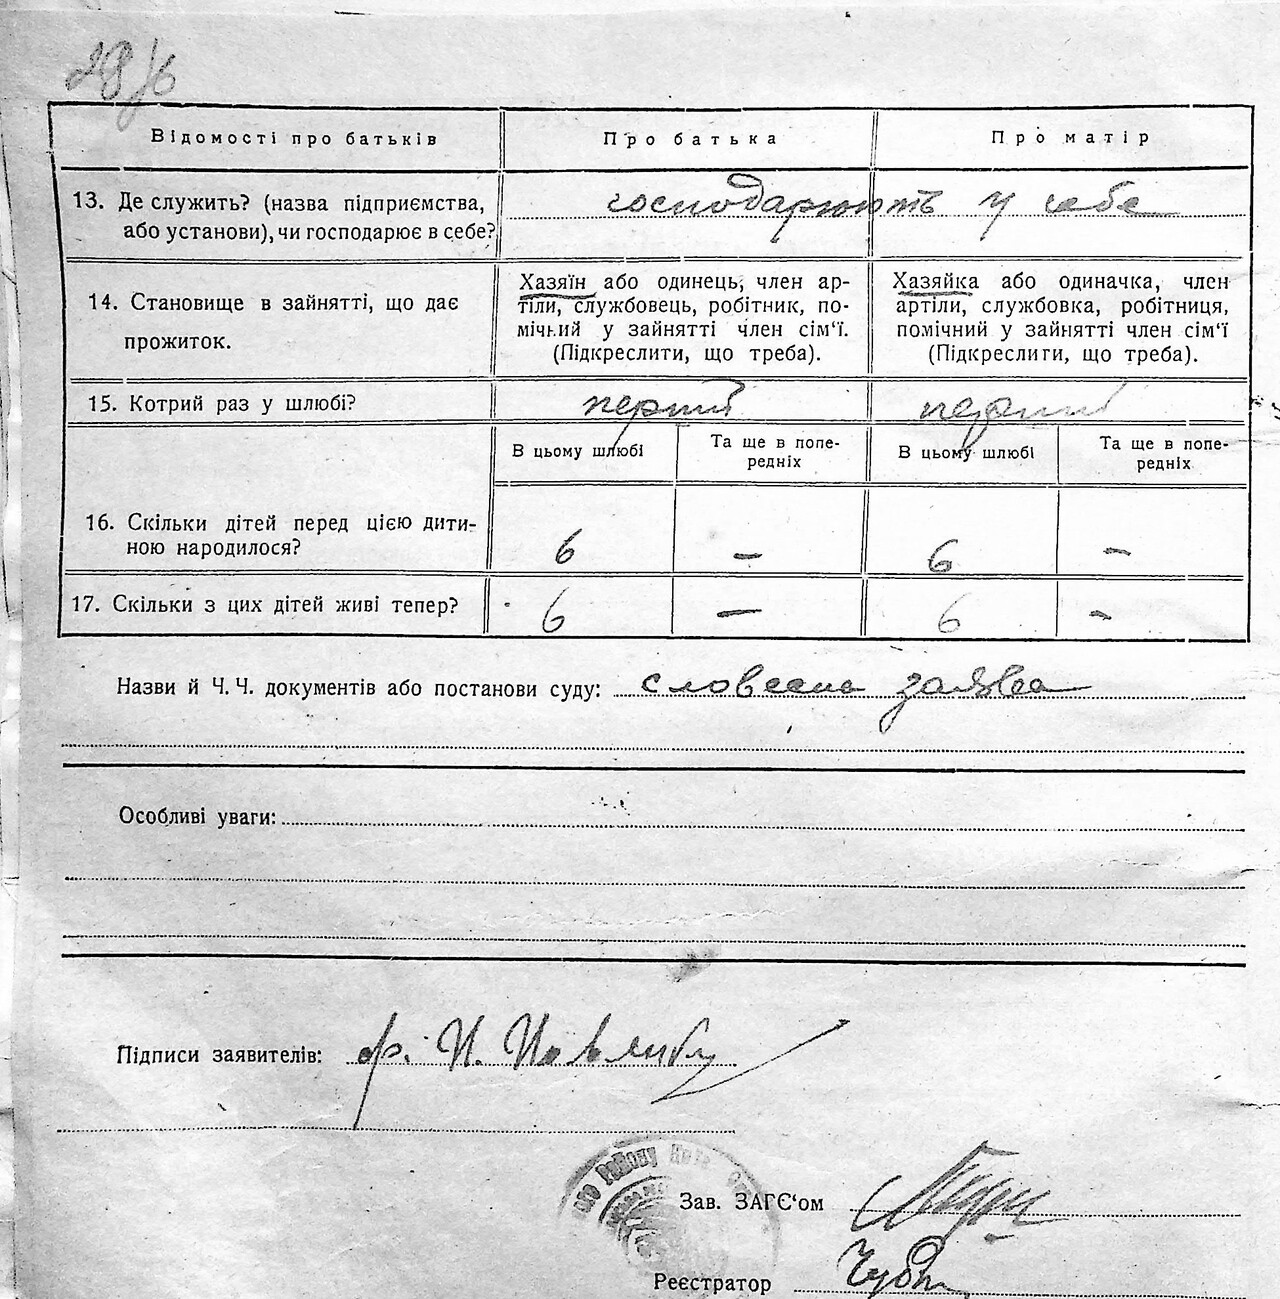 28/6
Відомості про батьків
Про батька
Про матір
13. Де служить? (назва підприємства,
або установи), чи господарює в себе?
господарюють у себе
14. Становище в зайнятті, що дає
прожиток.
Хазяїн або одинець, член ар-
тіли, службовець, робітник, по-
мічний у зайнятті член сім'ї.
(Підкреслити, що треба).
Хазяйка або одиначка, член
артіли, службовка, робітниця,
помічний у зайнятті член сім'ї
(Підкреслити, що треба).
15. Котрий раз у шлюбі?
перший
перший
В цьому шлюбі
Та ще в попе-
редніх
В цьому шлюбі
Та ще в попе-
редніх
16. Скільки дітей перед цією дити-
ною народилося?
6
—
6
—
17. Скільки з цих дітей живі тепер?
6
—
6
—
Назви й Ч. Ч. документів або постанови суду: словесна заява
Особливі уваги:
Підписи заявителів:
Району
Зав. ЗАГС'ом
Реєстратор